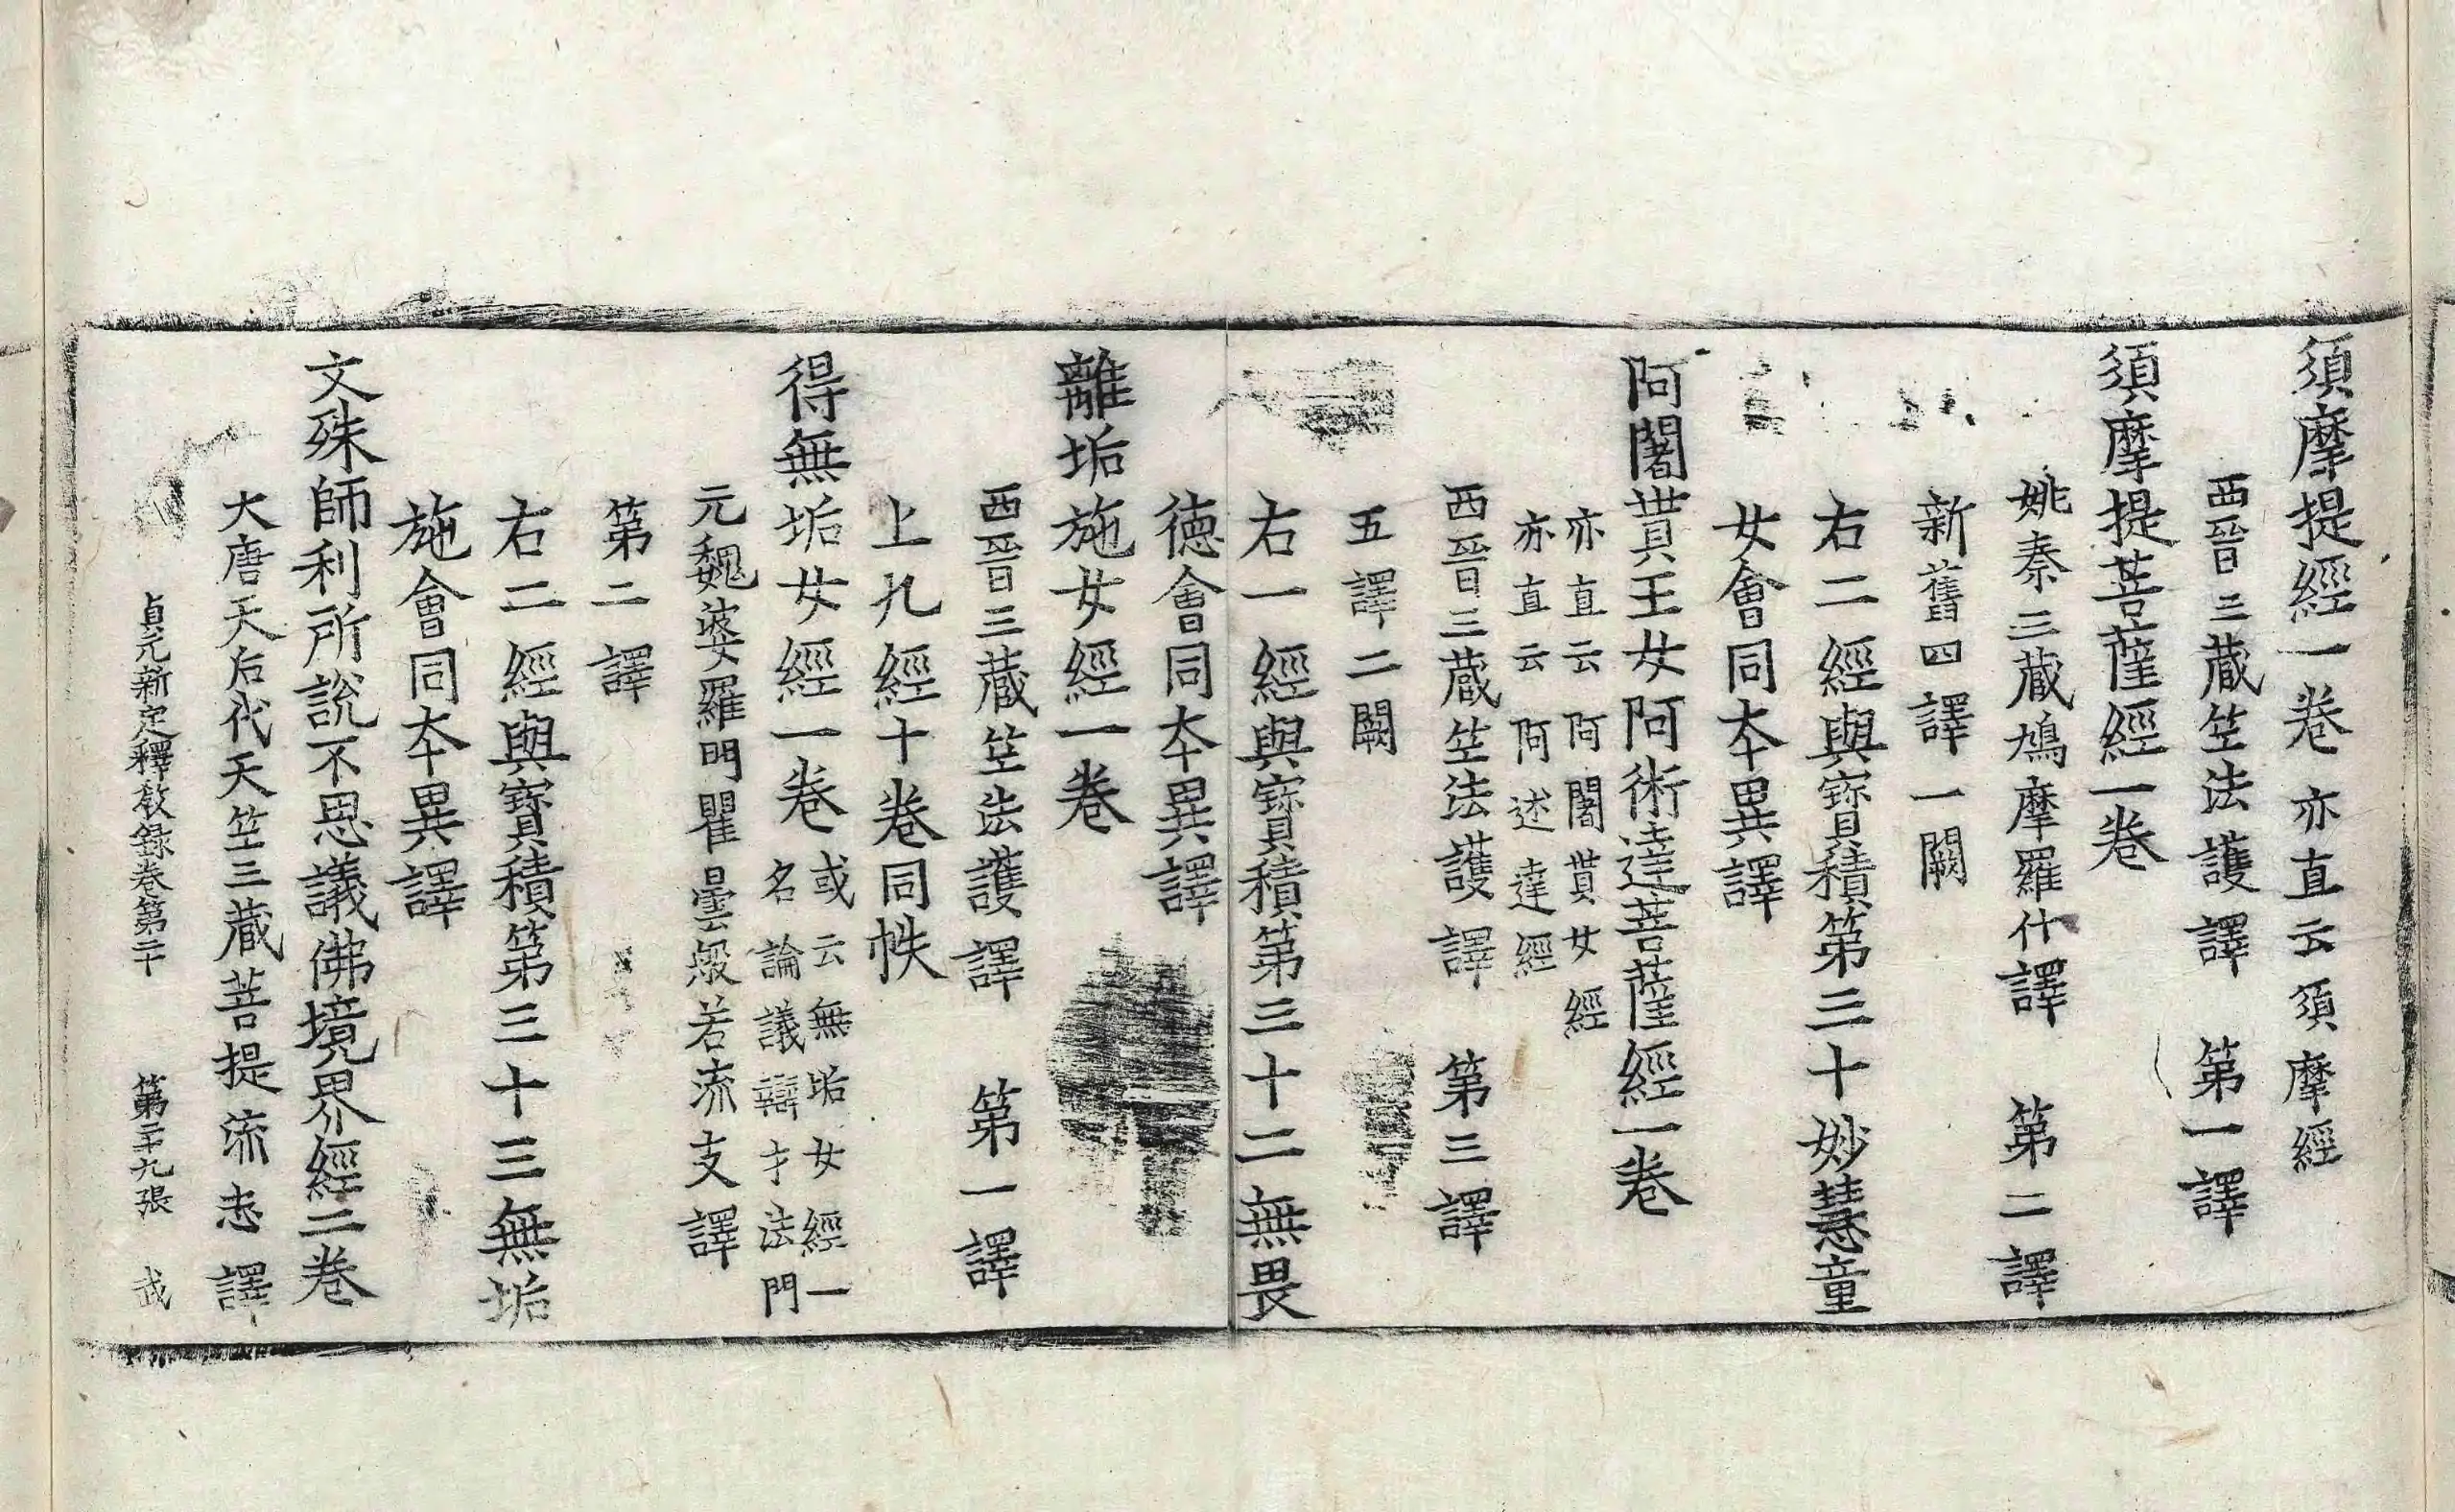 須摩提經一卷亦直云須摩經
西晉三藏竺法護譯　第一譯
須摩提菩薩經一卷
姚秦三藏鳩摩羅什譯　第二譯
新舊四譯一闕
右二經與寶積第三十妙慧童
女會同本異譯
阿闍貰王女阿術達菩薩經一卷
亦直云阿闍貰女經
亦直云阿述達經
西晉三藏竺法護譯　第三譯
五譯二闕
右一經與寶積第三十二無畏
德會同本異譯
離垢施女經一卷
西晉三藏竺法護譯　第一譯
上九經十卷同帙
得無垢女經一卷
或云無垢女經一
名論議辯才法門
元魏婆羅門瞿曇般若流支譯
第二譯
右二經與寶積第三十三無垢
施會同本異譯
文殊師利所說不思議佛境界經二卷
大唐天后代天竺三藏菩提流志譯
貞元新定釋教錄卷第二十　第二十九張　武